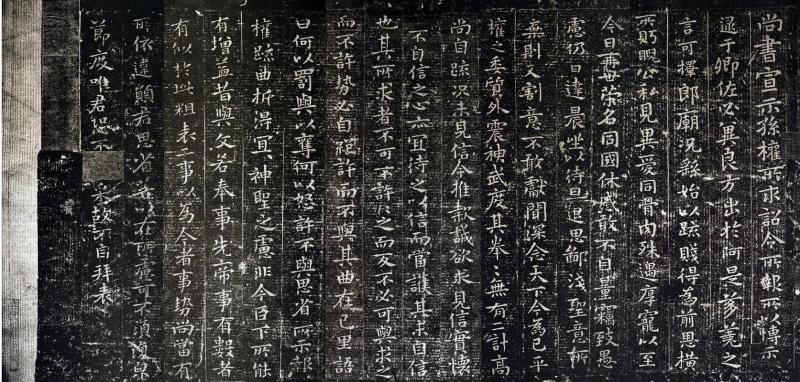 尚書宣示孫權所求詔令所報所以博示
逮于卿佐必冀良方出於阿是芻蕘之
言可擇郎廟況繇始以疏賤得為前思橫
所眄睨公私見異愛同骨肉殊遇厚寵以至
今日再世榮名同國休慼敢不自量竊致愚
慮仍日達晨坐以待旦退思鄙淺聖意所
棄則又割意不敢獻聞深念天下今為已平
權之委質外震神武度其拳拳無有二計高
尚自疏況未見信今推款誠欲求見信實懷
不自信之心亦宜待之以信而當護其未自信
也其所求者不可不許許之而反不必可與求之
而不許勢必自絕許而不與其曲在己里語
曰何以罰與以奪何以怒許不與思省所示報
權疏曲折得宜神聖之慮非今臣下所能
有增益昔與文若奉事先帝事有數者
有似於此粗表二事以為今者事勢尚當有
所依違願君思省若以在所慮可不須復貌
節度唯君恐不可采故不自拜表